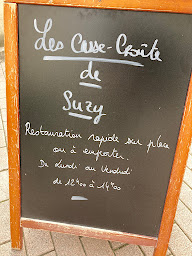 Les Casse-Croûte
de
Suzy
Restauration rapide sur place
ou à emporter.
Du Lundi au Vendredi
de 12h00 à 14h00